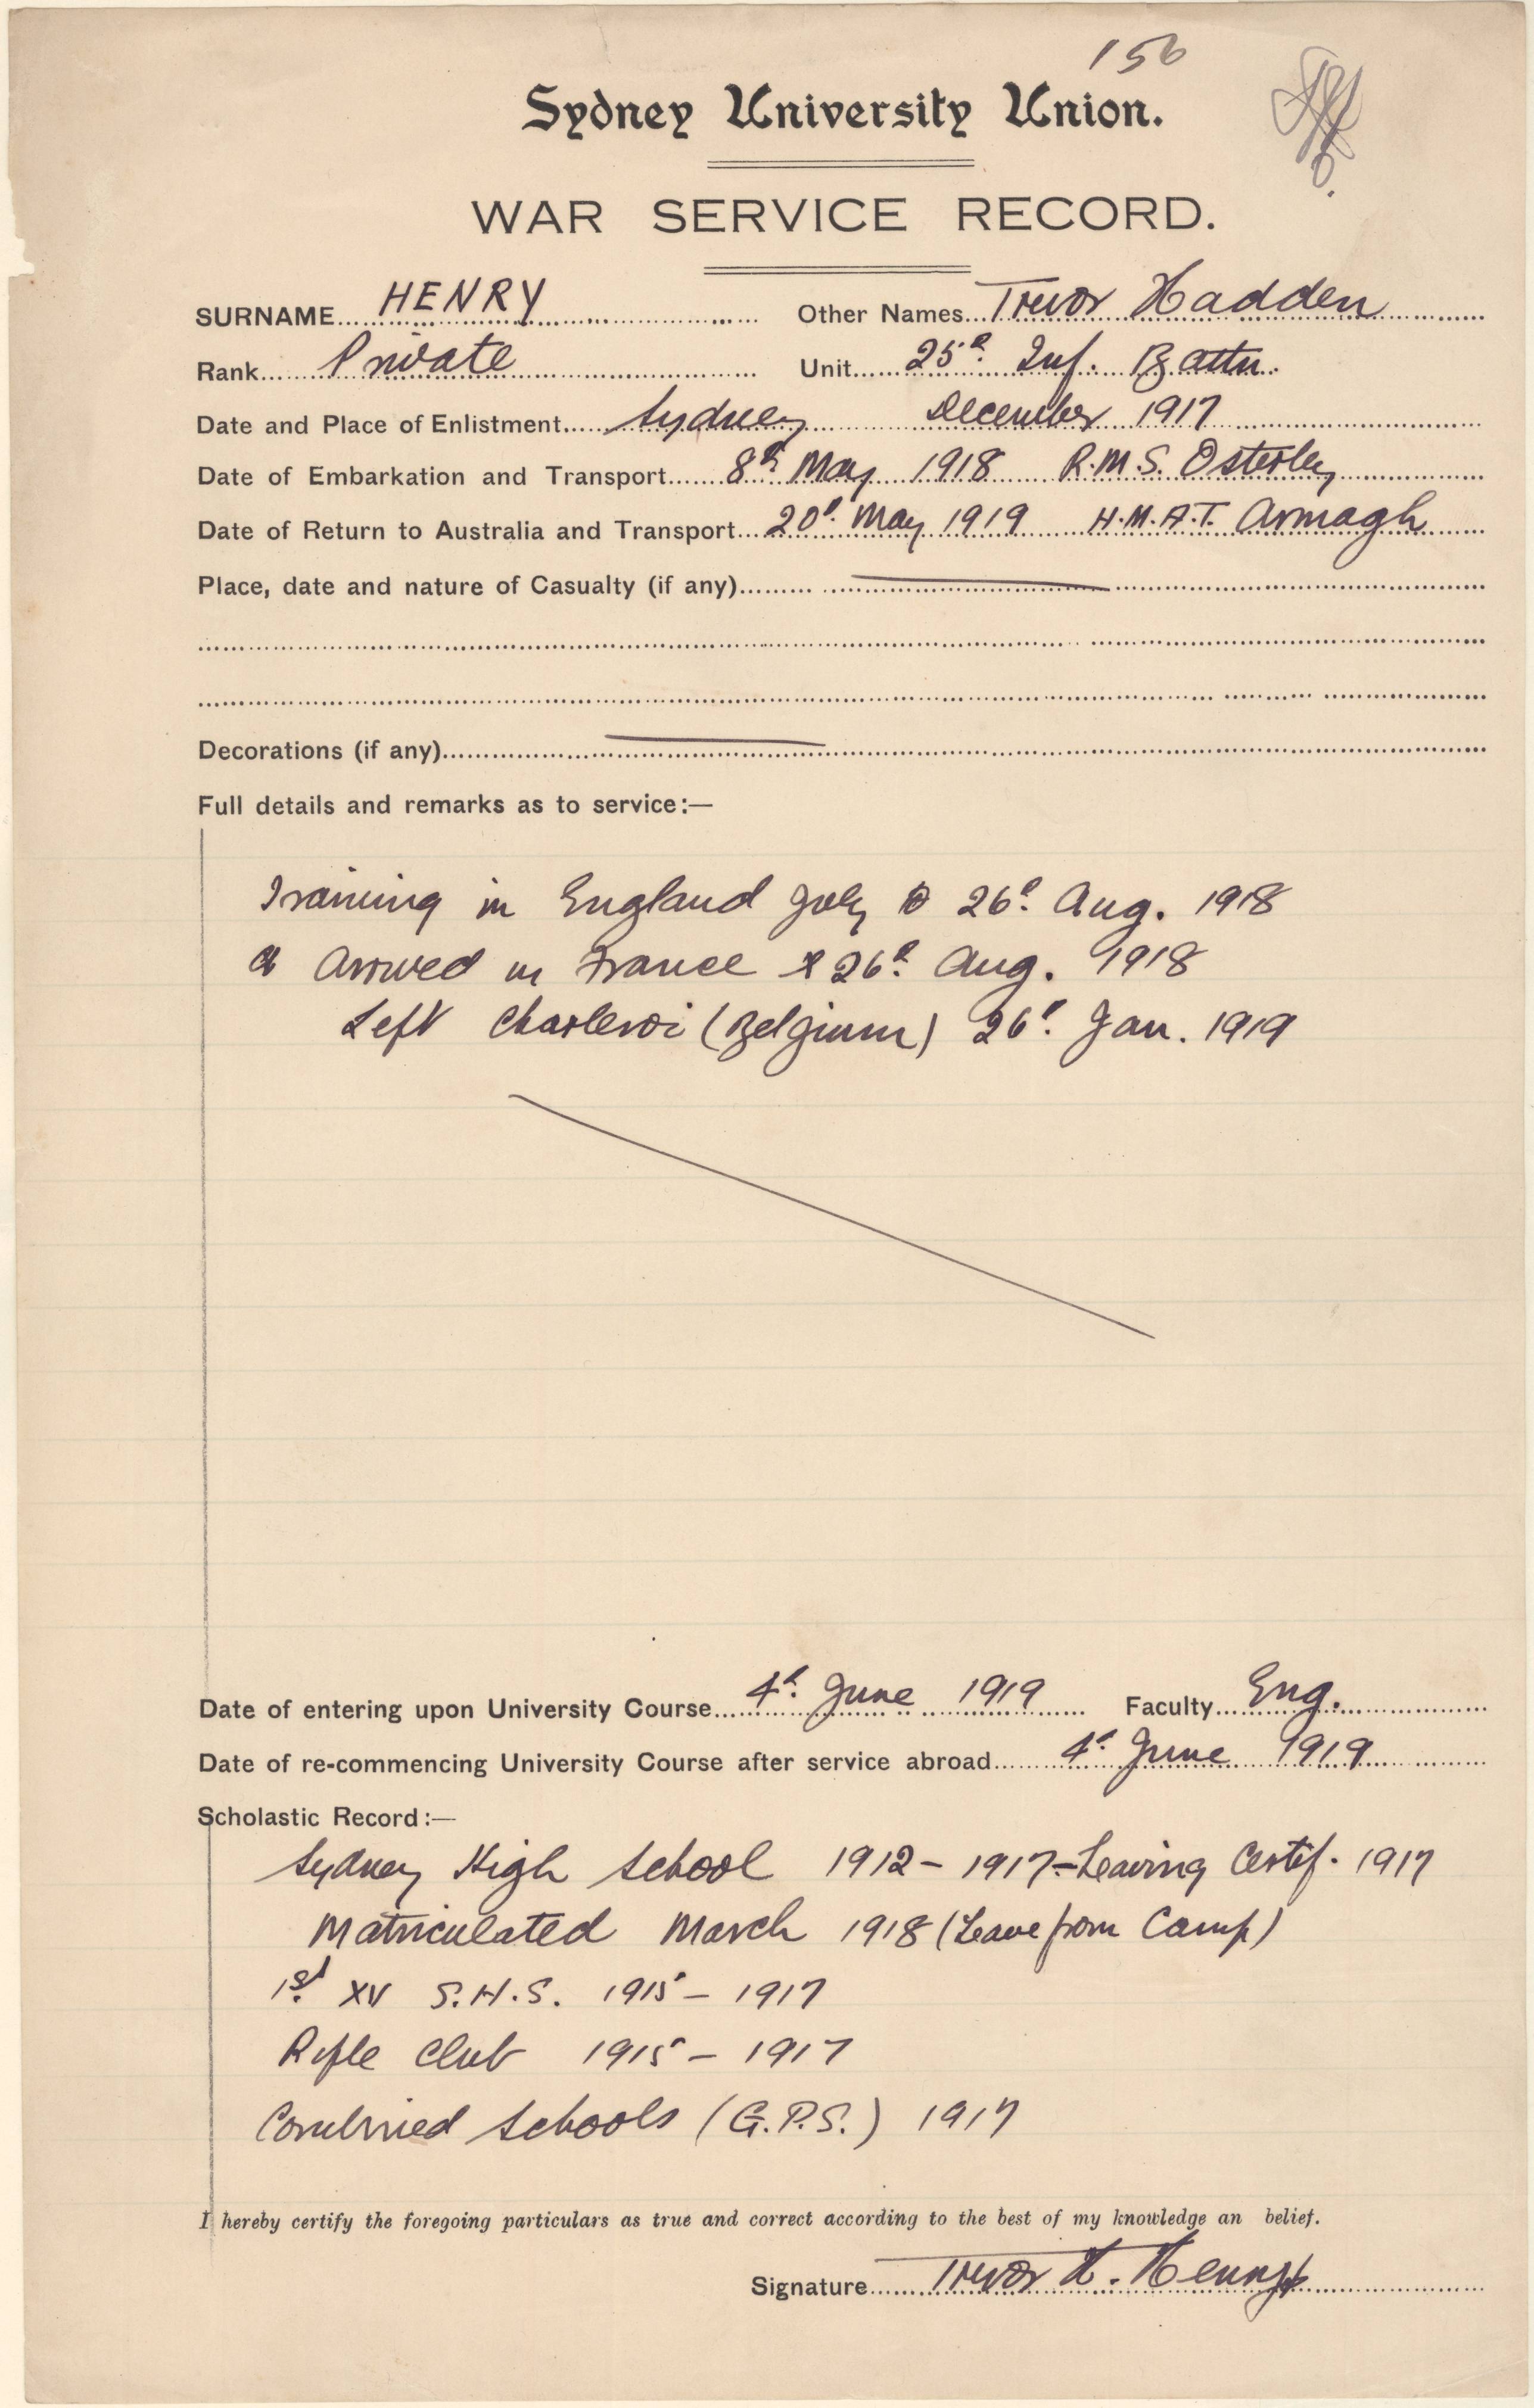 156
Sydney University Union.
WAR SERVICE RECORD.
SURNAME HENRY Other Names Trevor Hadden
Rank Private Unit 25th Inf. Battn.
Date and Place of Enlistment Sydney December 1917
Date of Embarkation and Transport 8th May 1918 R.M.S. Osterley
Date of Return to Australia and Transport 20th May 1919 H.M.A.T. Armagh
Place, date and nature of Casualty (if any)
Decorations (if any)
Full details and remarks as to service:—
Training in England July to 26th Aug. 1918
Arrived in France 26th Aug. 1918
Left Charleroi (Belgium) 26th Jan. 1919
Date of entering upon University Course 4th June 1919 Faculty Eng.
Date of re-commencing University Course after service abroad 4th June 1919
Scholastic Record:—
Sydney High School 1912 - 1917 - Leaving Certif. 1917
Matriculated March 1918 (Leave from Camp)
1st XV S.H.S. 1915 - 1917
Rifle Club 1915 - 1917
Combined Schools (G.P.S.) 1917
I hereby certify the foregoing particulars as true and correct according to the best of my knowledge an belief.
Signature Trevor H. Henry